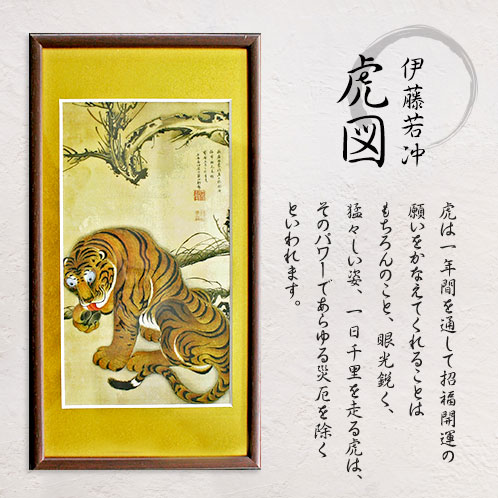 伊藤若冲
虎図
虎は一年間を通して招福開運の
願いをかなえてくれることは
もちろんのこと、眼光鋭く、
猛々しい姿、一日千里を走る虎は、
そのパワーであらゆる災厄を除く
といわれます。